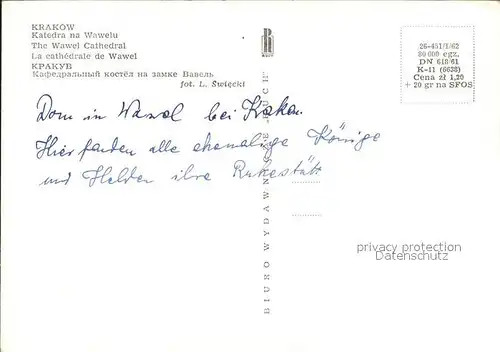 KRAKÓW
Katedra na Wawelu
The Wawel Cathedral
La cathédrale de Wawel
КРАКУВ
Кафедральный костёл на замке Вавель
fot. L. Święcki
26-451/I/62
80 000 egz.
DN 618/61
K-11 (6638)
Cena zł 1,20
+ 20 gr na SFOS
Dom in Wawel bei Krakau.
Hier fanden alle ehemalige Könige
und Helden ihre Ruhestätt
BIURO WYDAWNICZE „RUCH”
privacy protection
ansichtskarten-center.de